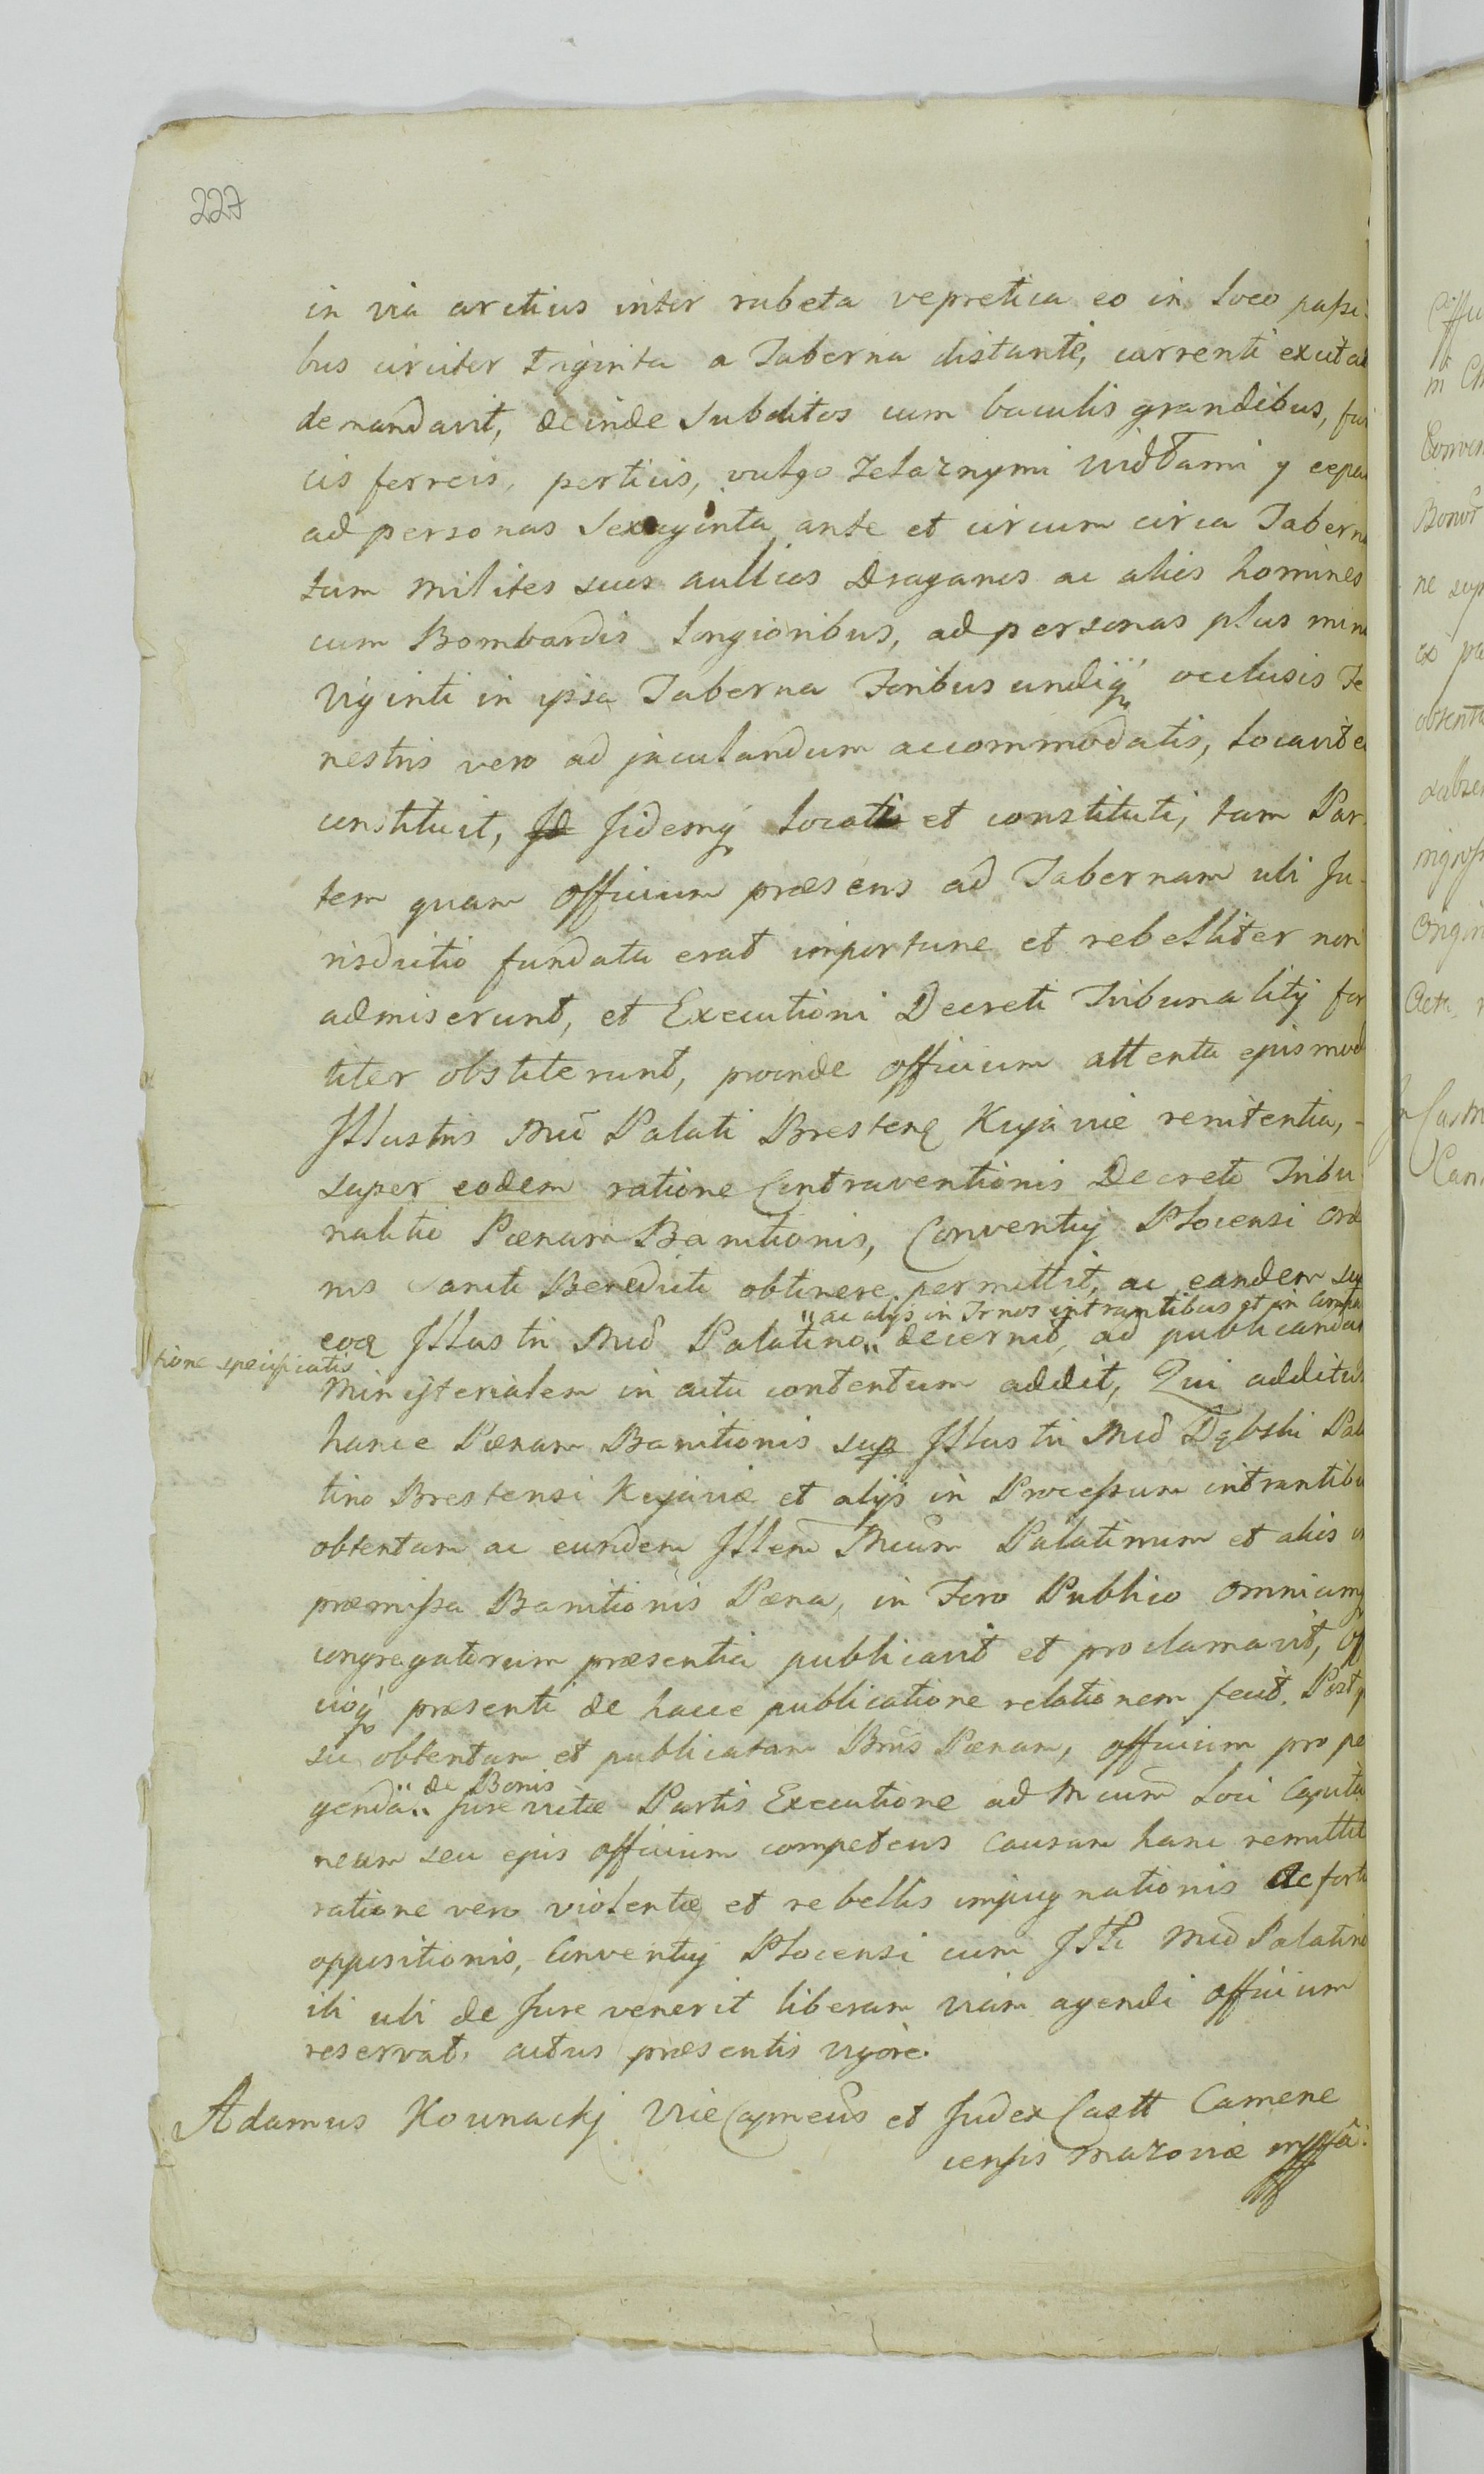 227
in via arctius inter rubeta vepretica eo in loco passi-
bus circiter triginta a Taberna distante, currenti
demandavit, deinde Subditos cum baculis grandibus, fur
cis ferreis, perticis, vulgo zelaznymi widłami y cepa
ad personas Sexaginta ante et circum circa Tabern
tum milites suos aulicos Draganos ac alios homines
cum Bombardis longioribus, ad personas plus min
viginti in ipsa Taberna Foribus undiq occlusis Fe
nestris vero ad jaculandum accommodatis, locavit e
constituit, Iidemq locati et constituti, tam Par-
tem quam officium præsens ad Tabernam ubi Ju-
risdictio fundata erat importune et rebelliter non
admiserunt, et Executioni Decreti Tribunalitij for
titer obstiterunt, proinde officium attenta ejusmod
Illustris Mci Palati Bresten Kujaviæ renitentia,-
super eodem ratione Contraventionis Decreti Tribu
nalitii Pænam Banitionis, Conventuj Plocensi Ordi
nis Sancti Benedicti obtinere permittit, ac eandem sup
" ac alijs in Trnos intrantibus et in Compa
eoq Illustri Mco Palatino " decernit, ad publicandam
tione specificatis
Ministerialem in actu contentum addit, Qui additus
hance Pænam Banitionis sup Illustri Mco Dąbski Pala
tino Brestensi Kujaviæ et alijs in Processum intrantibu
obtentam ac eundem Illem Mcum Palatinum et alios in
præmissa Banitionis Pæna, in Foro Publico omniumq
congregatorum præsentia publicavit et proclamavit, Off
cioq præsenti de hacce publicatione relationem fecit. Post
sic obtentam et publicatam Bnis Pænam, officium pro pe
" de Bonis
genda " Jure victæ Partis Executione ad Mcum Loci Capita
neum seu ejus officium competens causam hanc remittit
ratione vero violentiæ et rebellis impugnationis ac forti
oppositionis, Conventuj Plocensi cum Illi Mco Palatino
ibi ubi de Jure venerit liberam viam agendi officium
reservat. actus præsentis vigore.
Adamus Kownackj ViceCapneus et Judex Castt Camene
censis Mazoviæ mppa